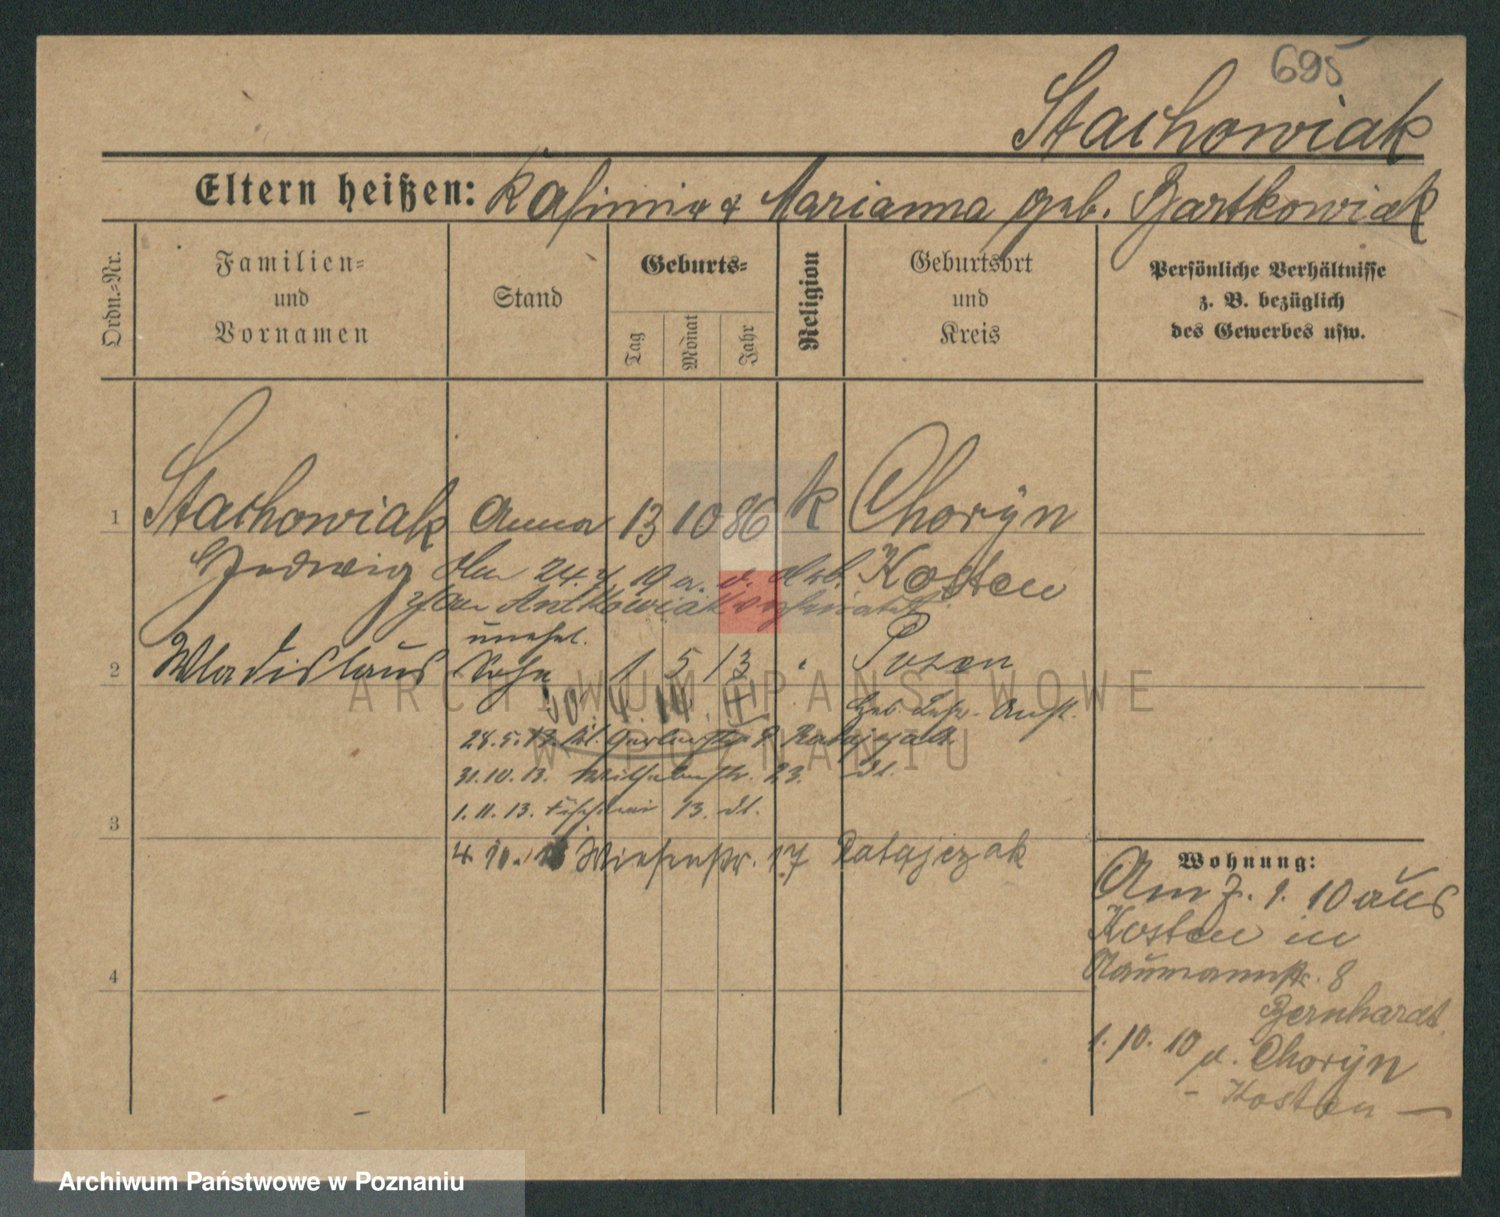 695
Stachowiak
Eltern heißen: Kasimir & Marianna geb. Bartkowiak
Ordn.-Nr.
Familien-
und
Vornamen
Stand
Geburts-
Tag
Monat
Jahr
Religion
Geburtsort
und
Kreis
Persönliche Verhältnisse
z. B. bezüglich
des Gewerbes usw.
1 Stachowiak Anna 13 10 86 k Choryn
Hedwig 24. 19 Kosten
Antkowiak
unehel.
2 Wladislaus Sohn 1 5 13 Posen
28.5.13 8 Ratajczak
31.10.13. Wilhelmstr. 23.
1.11.13. Fischerei 13.
3
4 10. Wiesenstr. 17 Ratajczak
4
Wohnung:
Am 7. 1. 10 aus
Kosten in
Naumannstr. 8
Bernhardt
1. 10. 10 n. Choryn
- Kosten -
ARCHIWUM PAŃSTWOWE
W POZNANIU
Archiwum Państwowe w Poznaniu